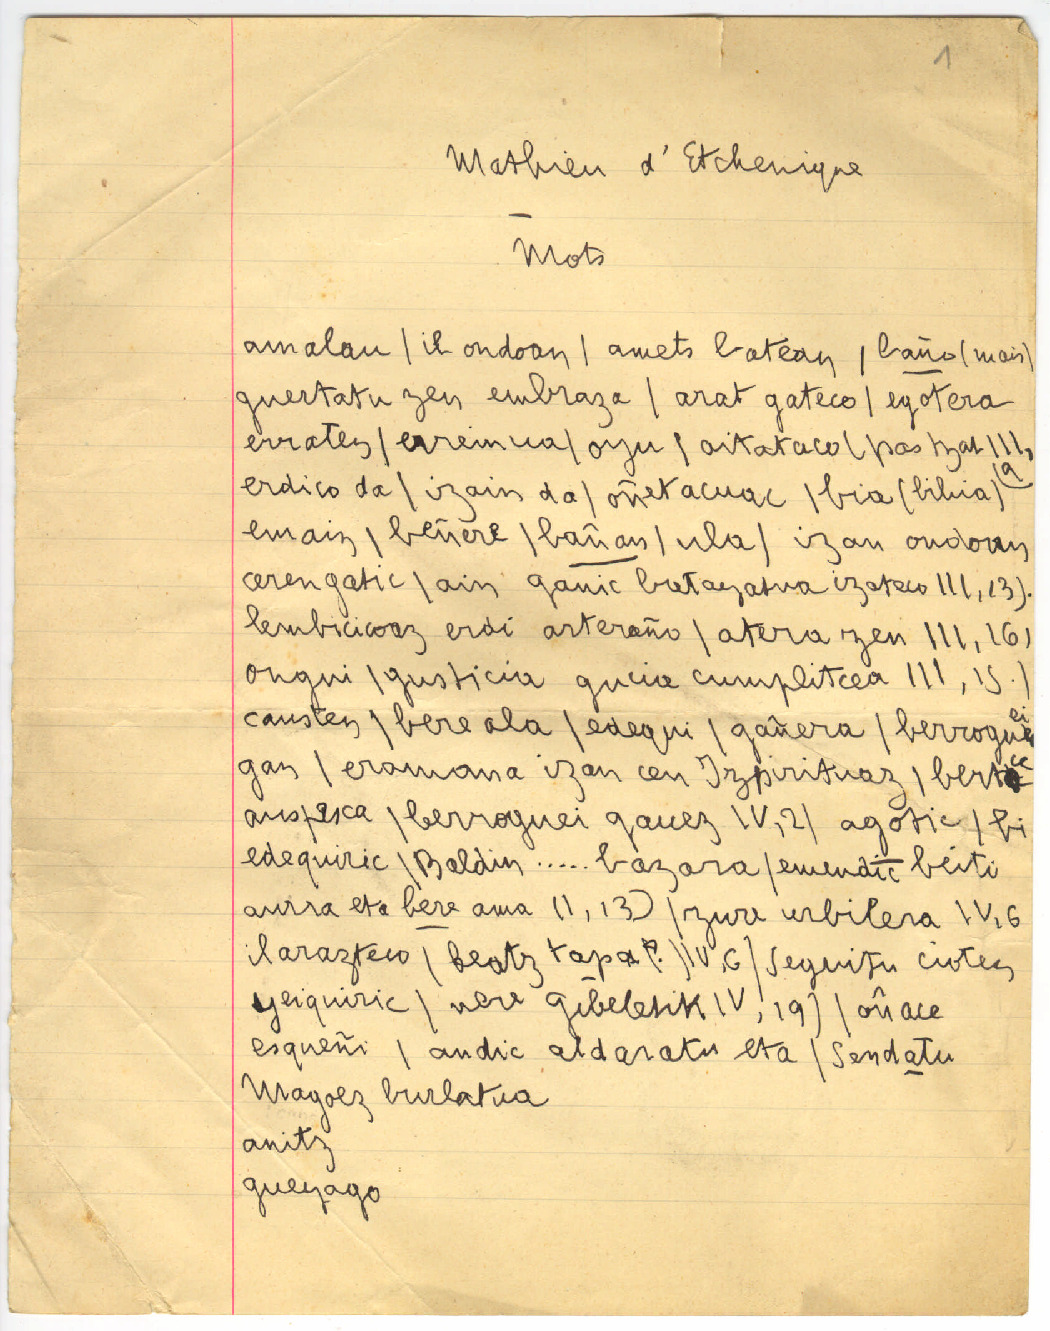 1
Mathieu d'Etchenique
Mots
amalau | il ondoan | amets batean | baño (mais)
guertatu zen embraza | arat gateco | egotera
erraten | erreinua | oyu | aitataco (pas tzat III,
9)
erdico da | izain da | oñetacuac | bia (bihia)
emain | beñere | bañan | ula | izan ondoan
cerengatic | ain ganic batayatua izateco III, 13).
lembicicoaz erdi arteraño | atera zen III, 16)
ongui | gusticia gucia cumplitcea III, 15.)
causten | bere ala | edequi | gañera | berroguei
gan | eramana izan cen Izpirituaz | bertce
auspesca | berroguei gauez IV, 2) agotic | bi
edequiric | Baldin ..... bazara | emendic beiti
aurra eta bere ama II, 13) | zure urbilera IV, 6
ilarazteco | beatz tapa ?) IV, 6) Seguitu cioten
yeiquiric | nere gibeletik IV, 19) | oñace
esqueñi | andic aldaratu eta | Sendatu
Magoez burlatua
anitz
gueyago